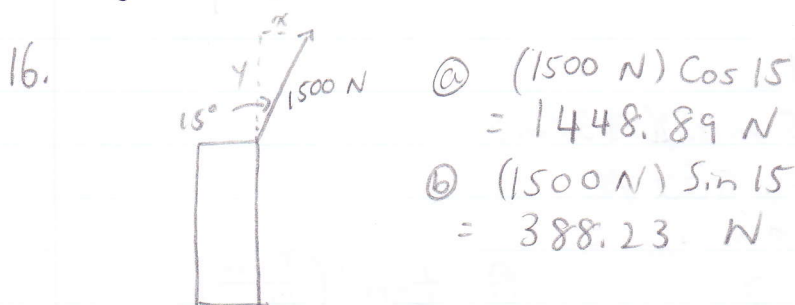 16.
x
y
15°
1500 N
ⓐ (1500 N) Cos 15
= 1448.89 N
ⓑ (1500 N) Sin 15
= 388.23 N